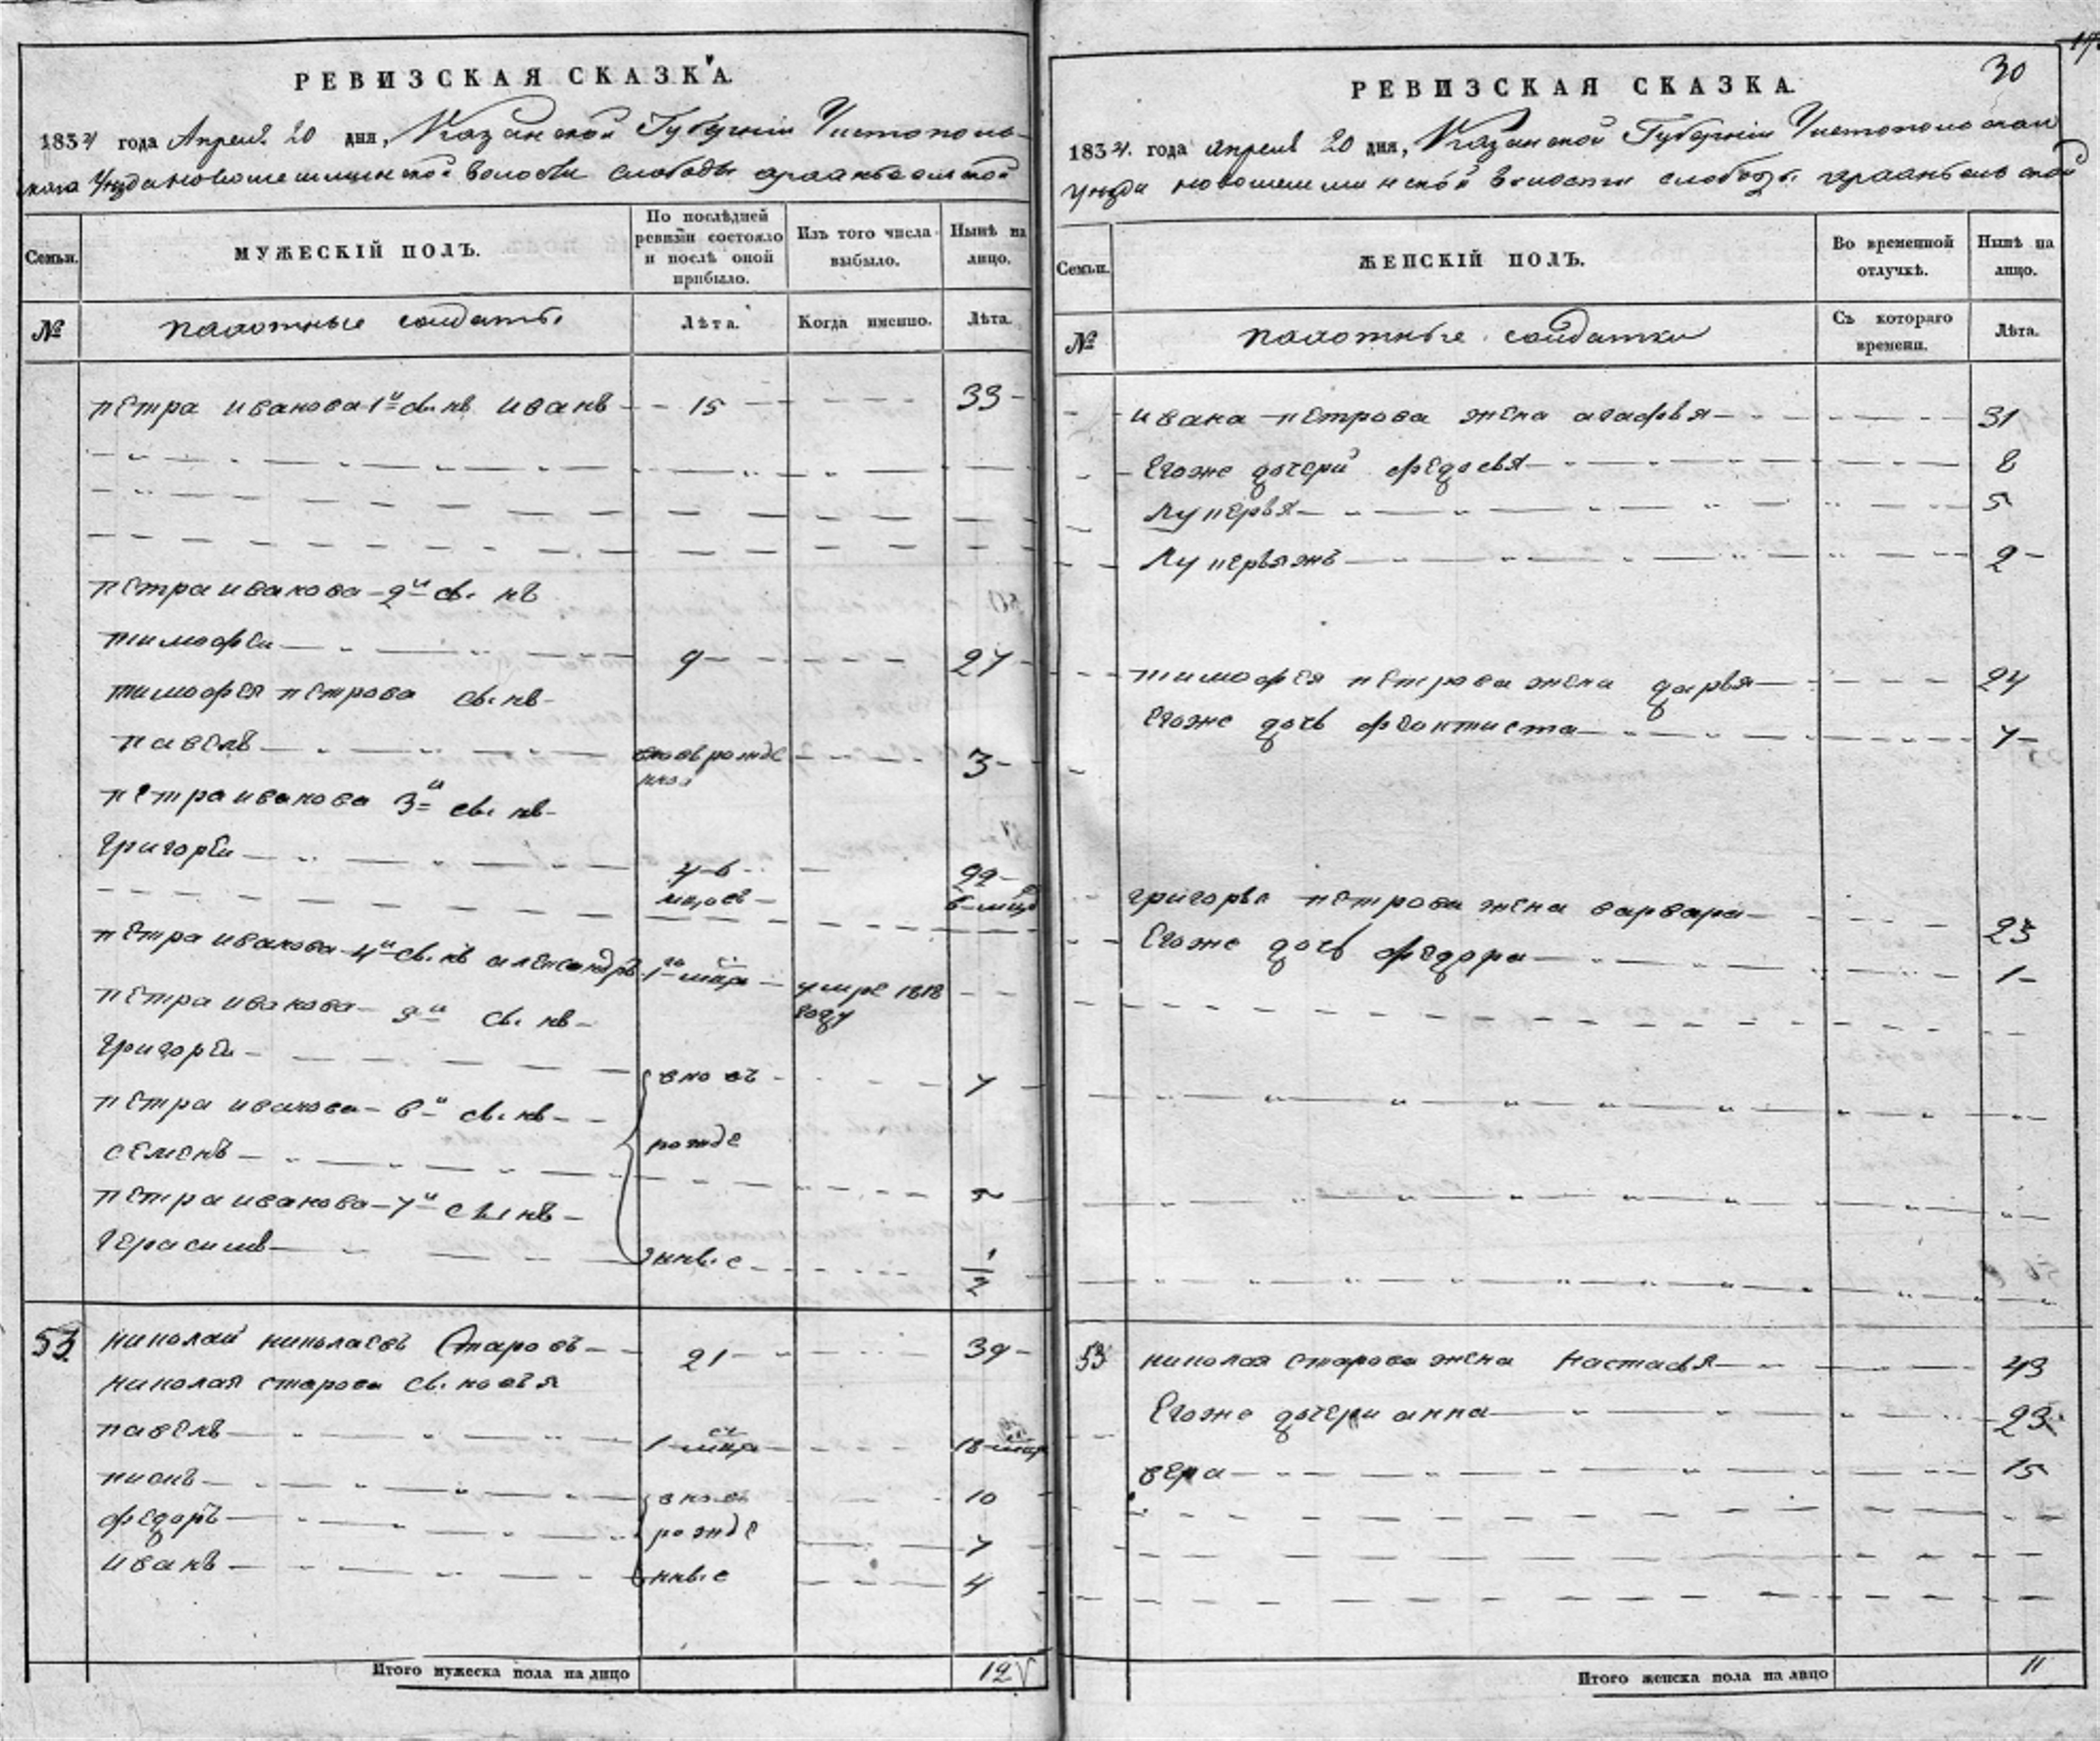 РЕВИЗСКАЯ СКАЗКА.
1834 года Апреля 20 дня, Казанской Губернiи Чистополь-
скаго Уезда новошешминской волости слободы
Семьи.
МУЖЕСКІЙ ПОЛЪ.
По послѣдней ревизіи состояло и послѣ оной прибыло.
Изъ того числа выбыло.
Нынѣ на лицо.
№
пахотные солдаты
Лѣта.
Когда именно.
Лѣта.
петра иванова 1й сынъ иванъ 15 33
петра иванова 2й сынъ
тимофеи 9 27
тимофея петрова сынъ
павелъ вновь рожде 3
ной
петра иванова 3й сынъ
григореи 4 22
мцовъ
петра иванова 4й сынъ александръ 1 мцр умре 1818
году
петра иванова сынъ
григореи вновь 7
петра иванова 6й сынъ рожде
семенъ 5
петра иванова 7й сынъ
герасимъ нные 1/2
53 николай николаевъ Старовъ 21 39
николая старова сыновья
павелъ 1 мцр 18
вновь 10
федоръ рожде 7
иванъ нные 4
Итого мужеска пола на лицо 12
30
РЕВИЗСКАЯ СКАЗКА.
1834. года апреля 20 дня, Казанской Губернiи Чистопольскаго
уезда новошешминской волости слободы
Семьи.
ЖЕНСКІЙ ПОЛЪ.
Во временной отлучкѣ.
Нынѣ на лицо.
№
пахотные солдатки
Съ котораго времени.
Лѣта.
ивана петрова жена агафья 31
Егоже дочери федосья 8
Лукерья 5
Лукерья жъ 2
тимофея петрова жена дарья 24
Егоже дочь феоктиста 7
григорья петрова жена варвара 23
Егоже дочь федора 1
53 николая старова жена настасья 43
Егоже дочери анна 23
вера 15
Итого женска пола на лицо 11